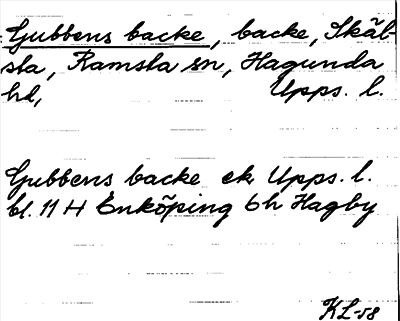 Gubbens backe, backe, Skäl-
sta, Ramsta sn, Hagunda
hd, Upps. l.
Gubbens backe ek Upps. l.
bl. 11 H Enköping 6h Hagby
KL-58